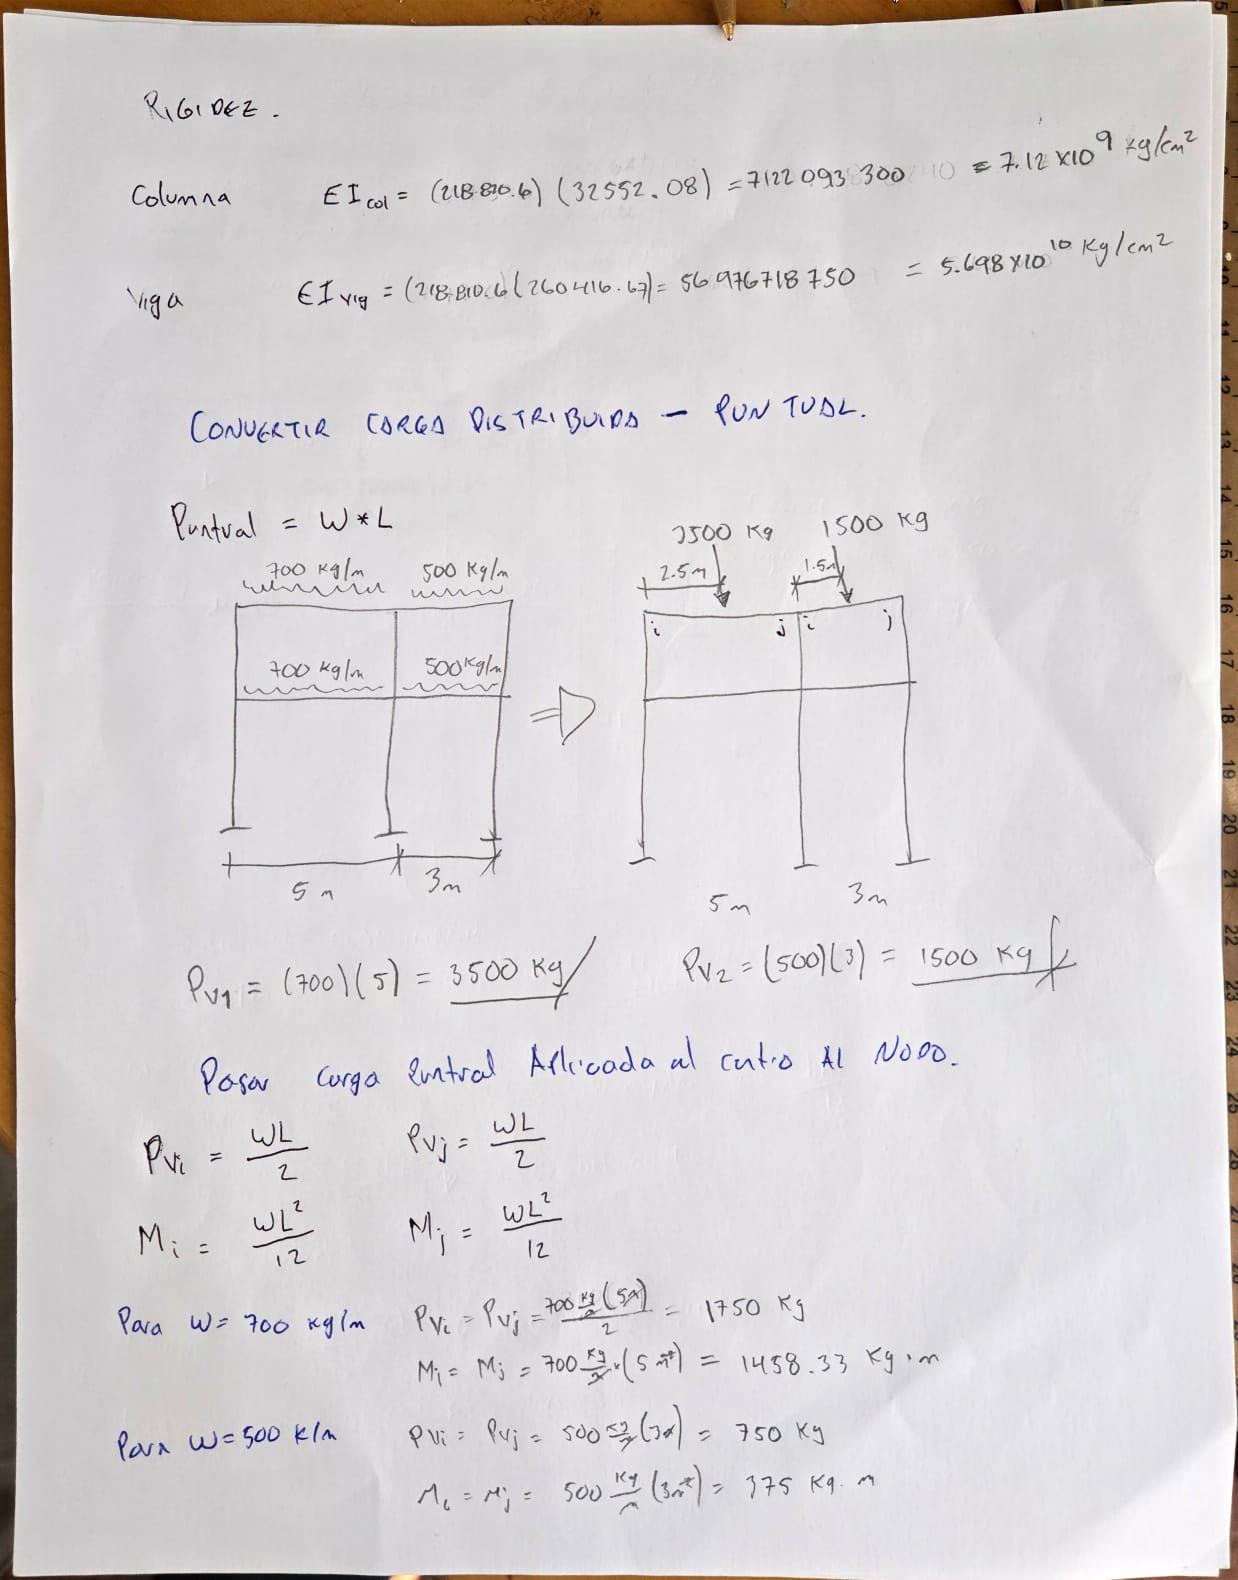 RIGIDEZ.
Columna EI col = (218 810.6) (32552.08) = 7122 093 300 = 7.12 x10⁹ kg/cm²
Viga EI vig = (218,810.6(260416.67) = 56 976718 750 = 5.698 x10¹⁰ Kg/cm²
CONVERTIR CARGA DISTRIBUIDA — PUNTUAL.
Puntual = W*L
3500 Kg 1500 Kg
700 Kg/m 500 Kg/m
2.5m 1.5m
i j i j
700 Kg/m 500Kg/m
5 m 3m
5m 3m
Pv1 = (700)(5) = 3500 Kg
Pv2 = (500)(3) = 1500 Kg
Pasar Carga Puntual Aplicada al centro Al NODO.
Pvi = WL/2 Pvj = WL/2
Mi = WL²/12 Mj = WL²/12
Para W= 700 Kg/m Pvi = Pvj = 700 Kg/m (5m)/2 = 1750 Kg
Mi = Mj = 700 Kg/m (5 m²) = 1458.33 Kg.m
Para W=500 K/m Pvi = Pvj = 500 Kg/m (3m) = 750 Kg
Mi = Mj = 500 Kg/m (3m²) = 375 Kg.m